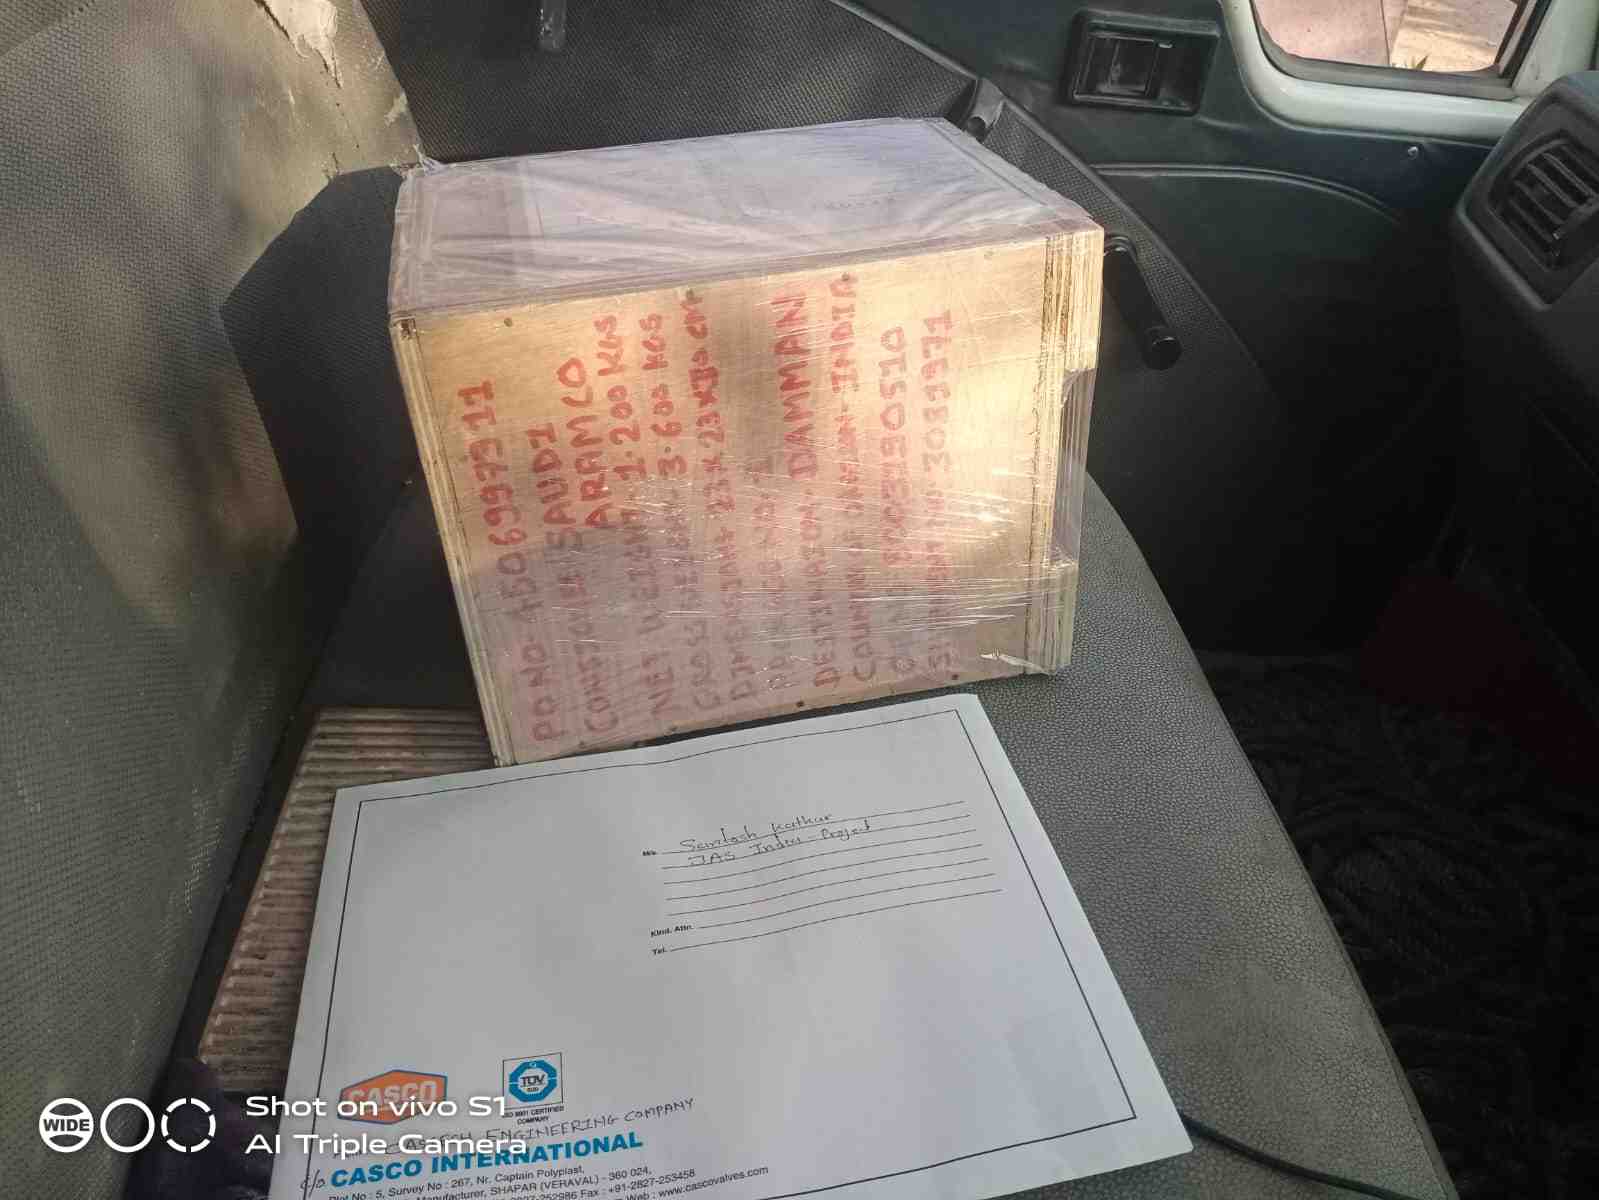 PO NO- 4506997911
CONSIGNEE SAUDI
ARAMCO
NET WEIGHT 1.200 KGS
GROSS WEIGHT 3.600 KGS
DIMENSION+ 23 X 23 X 30 CM
PACKAGE NO-
DESTINATION- DAMMAN
COUNTRY OF ORIGIN-INDIA
SHIPMENT NO 3089971
M/s. Santosh Kathar
JAS India - Project
Kind. Attn.
Tel.
CASCO
TÜV
SÜD
ISO 9001 CERTIFIED
COMPANY
CASTECH ENGINEERING COMPANY
c/o. CASCO INTERNATIONAL
Plot No : 5, Survey No : 267, Nr. Captain Polyplast,
Manufacturer, SHAPAR (VERAVAL) - 360 024,
252986 Fax : +91-2827-253458
Web : www.cascovalves.com
WIDE
Shot on vivo S1
AI Triple Camera